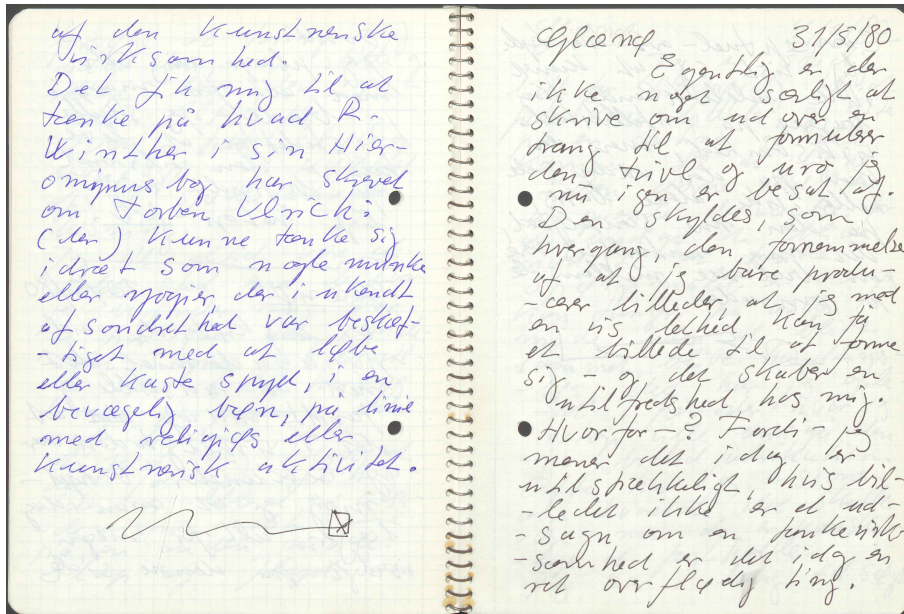 af den kunstneriske
virksomhed.
Det fik mig til at
tænke på hvad R.
Winther i sin Hier-
onymus bog har skrevet
om Torben Ulrich:
(der) kunne tænke sig
idræt som nogle munke
eller yogier, der i ukendt
afsondrethed var beskæf-
-tiget med at løbe
eller kaste spyd, i en
bevægelig bøn, på linie
med religiøs eller
kunstnerisk aktivitet.
Glænø 31/5/80
Egentlig er der
ikke noget særligt at
skrive om ud over en
trang til at formulere
den tvivl og uro jeg
nu igen er besat af.
Den skyldes, som
hvergang, den fornemmelse
af at jeg bare produ-
-cerer billeder, at jeg med
en vis lethed kan få
et billede til at forme
sig - og det skaber en
utilfredshed hos mig.
Hvorfor-? Fordi- jeg
mener det i dag er
utilstrækkeligt, hvis bil-
-ledet ikke er et ud-
-sagn om en tankevirk-
-somhed er det idag en
ret overflødig ting.